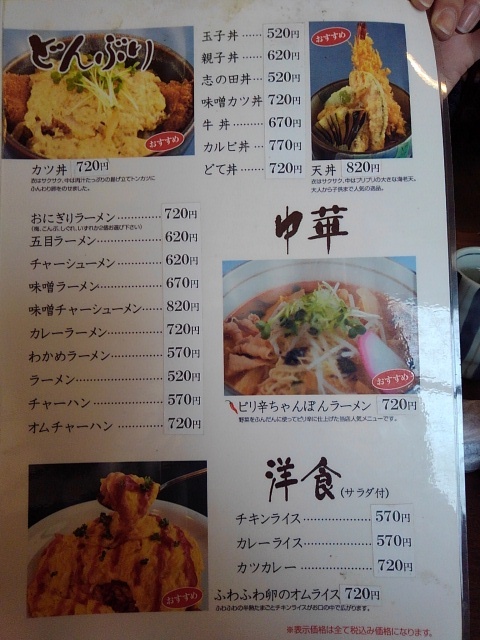 どんぶり
おすすめ
カツ丼 720円
衣はサクサク、中は肉汁たっぷりの揚げ立てトンカツに
ふんわり卵をのせました。
玉子丼 …… 520円
親子丼 …… 620円
志の田丼 … 520円
味噌カツ丼 720円
牛丼 ……… 670円
カルビ丼 … 770円
どて丼 …… 720円
おすすめ
天丼 820円
衣はサクサク、中はプリプリの大きな海老天。
大人から子供まで人気の逸品。
おにぎりラーメン ………… 720円
(梅、こんぶ、しぐれ、いずれか2個お選び下さい)
五目ラーメン ……………… 620円
チャーシューメン ………… 620円
味噌ラーメン ……………… 670円
味噌チャーシューメン …… 820円
カレーラーメン …………… 720円
わかめラーメン …………… 570円
ラーメン …………………… 520円
チャーハン ………………… 570円
オムチャーハン …………… 720円
中華
おすすめ
ピリ辛ちゃんぽんラーメン 720円
野菜をふんだんに使ってピリ辛に仕上げた当店人気メニューです。
洋食 (サラダ付)
チキンライス ……………… 570円
カレーライス ……………… 570円
カツカレー ………………… 720円
おすすめ
ふわふわ卵のオムライス 720円
ふわふわの半熟たまごとチキンライスがお口の中で広がります。
※表示価格は全て税込み価格になります。